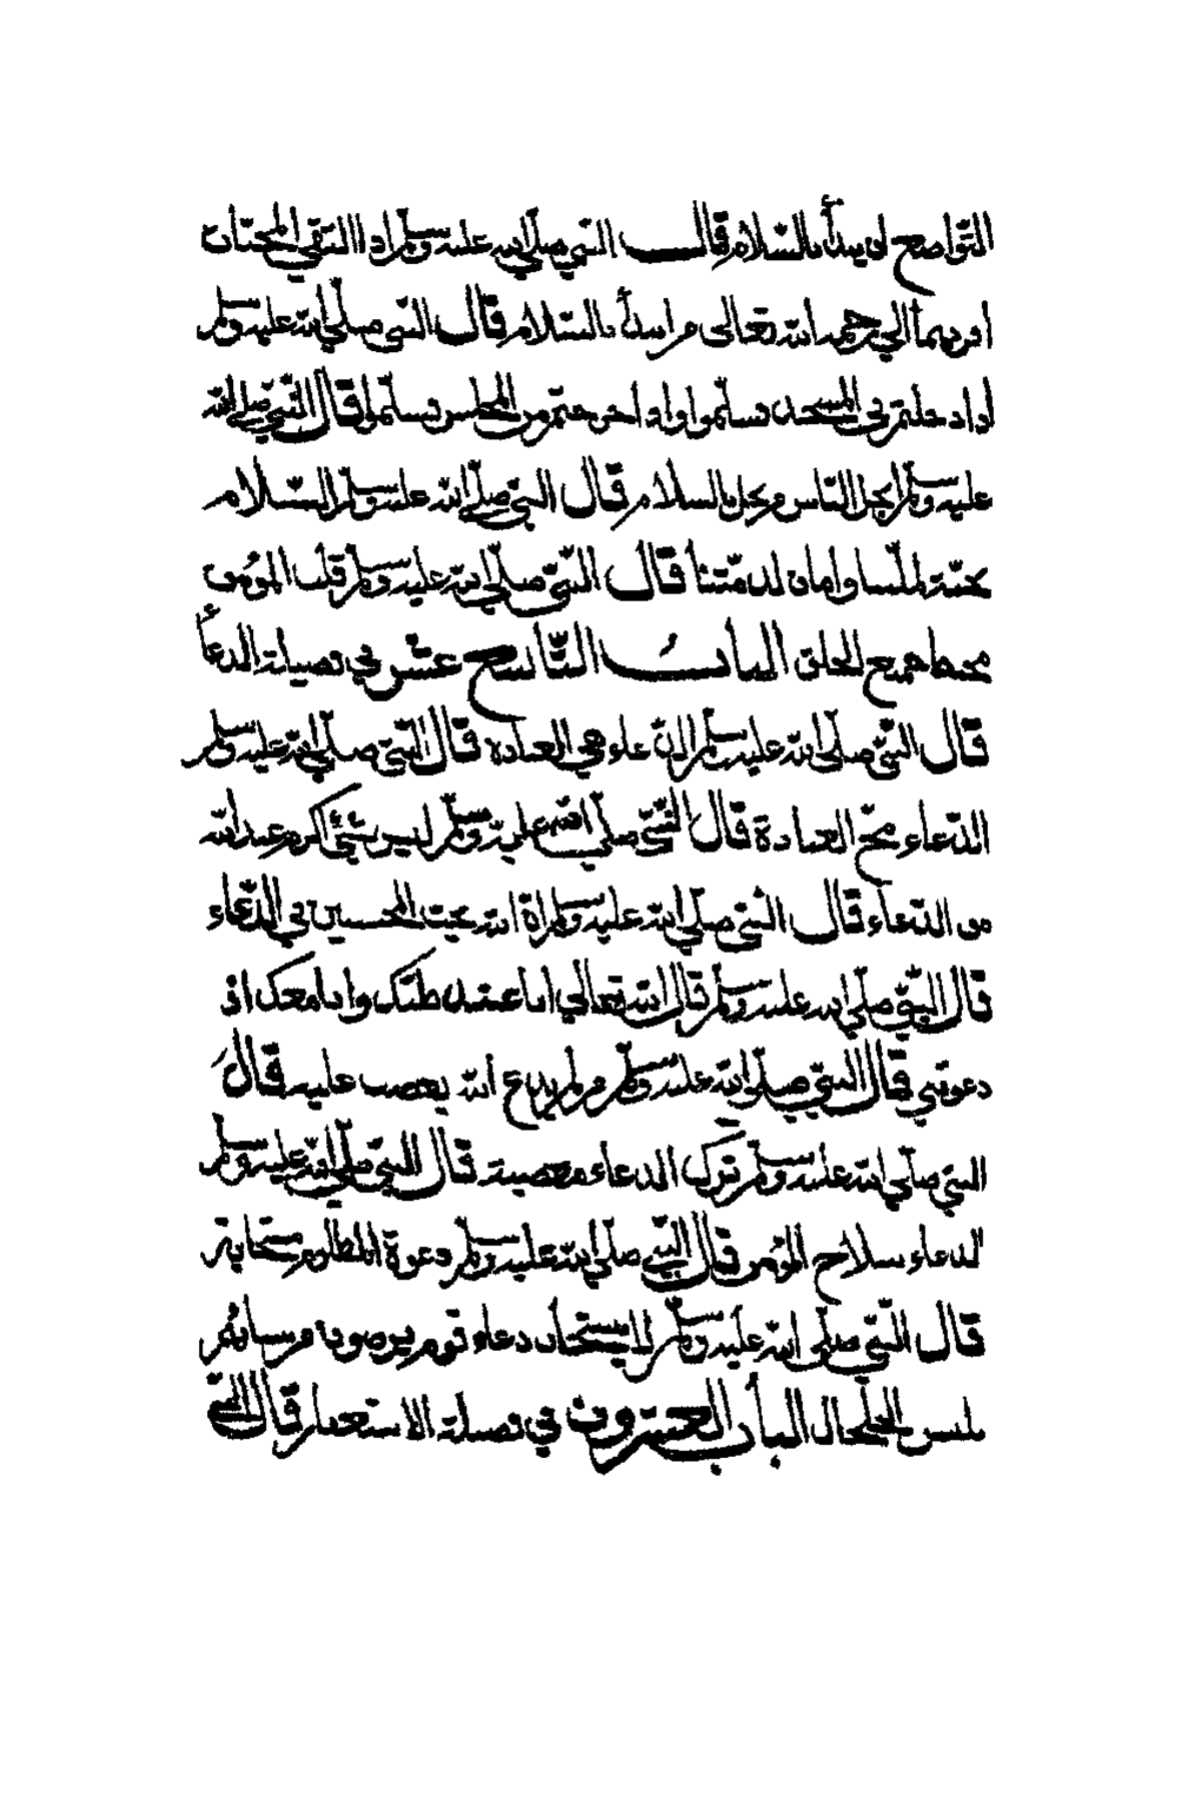 التواضع ان يبدأ بالسلام قال النبي صلي الله عليه وسلم اذا التقي المحبان
اقربهما الي رحمه الله تعالى من ابتدأ بالسلام قال النبي صلي الله عليه وسلم
اذا دخلتم في المسجد تسلموا واذا خرجتم من المجلس تسلموا قال النبي صلي الله
عليه وسلم ابخل الناس من بخل بالسلام قال النبي صلي الله عليه وسلم السلام
تحية لملتنا وامان لذمتنا قال النبي صلي الله عليه وسلم قلب المؤمن
جميع الخلق الباب التاسع عشر في فضيلة الدعأ
قال النبي صلي الله عليه وسلم الدعاء هي العبادة قال النبي صلي الله عليه وسلم
الدعاء مخ العبادة قال النبي صلي الله عليه وسلم ليس شيئ اكرم عند الله
من الدعاء قال النبي صلي الله عليه وسلم ان الله يحب في الدعاء
قال النبي صلي الله عليه وسلم قال الله تعالي انا عند ظنك وانا معك اذ
دعوتني قال النبي صلي الله عليه وسلم من لم يدع الله يغضب عليه قال
النبي صلي الله عليه وسلم ترك الدعاء معصية قال النبي صلي الله عليه وسلم
الدعاء سلاح المؤمن قال النبي صلي الله عليه وسلم دعوة المظلوم مستجابة
قال النبي صلي الله عليه وسلم لا يستجاب دعاء قوم يرضون من نسائهم
بلبس الخلخال الباب العشرون في فضيلة الاستغفار قال النبي